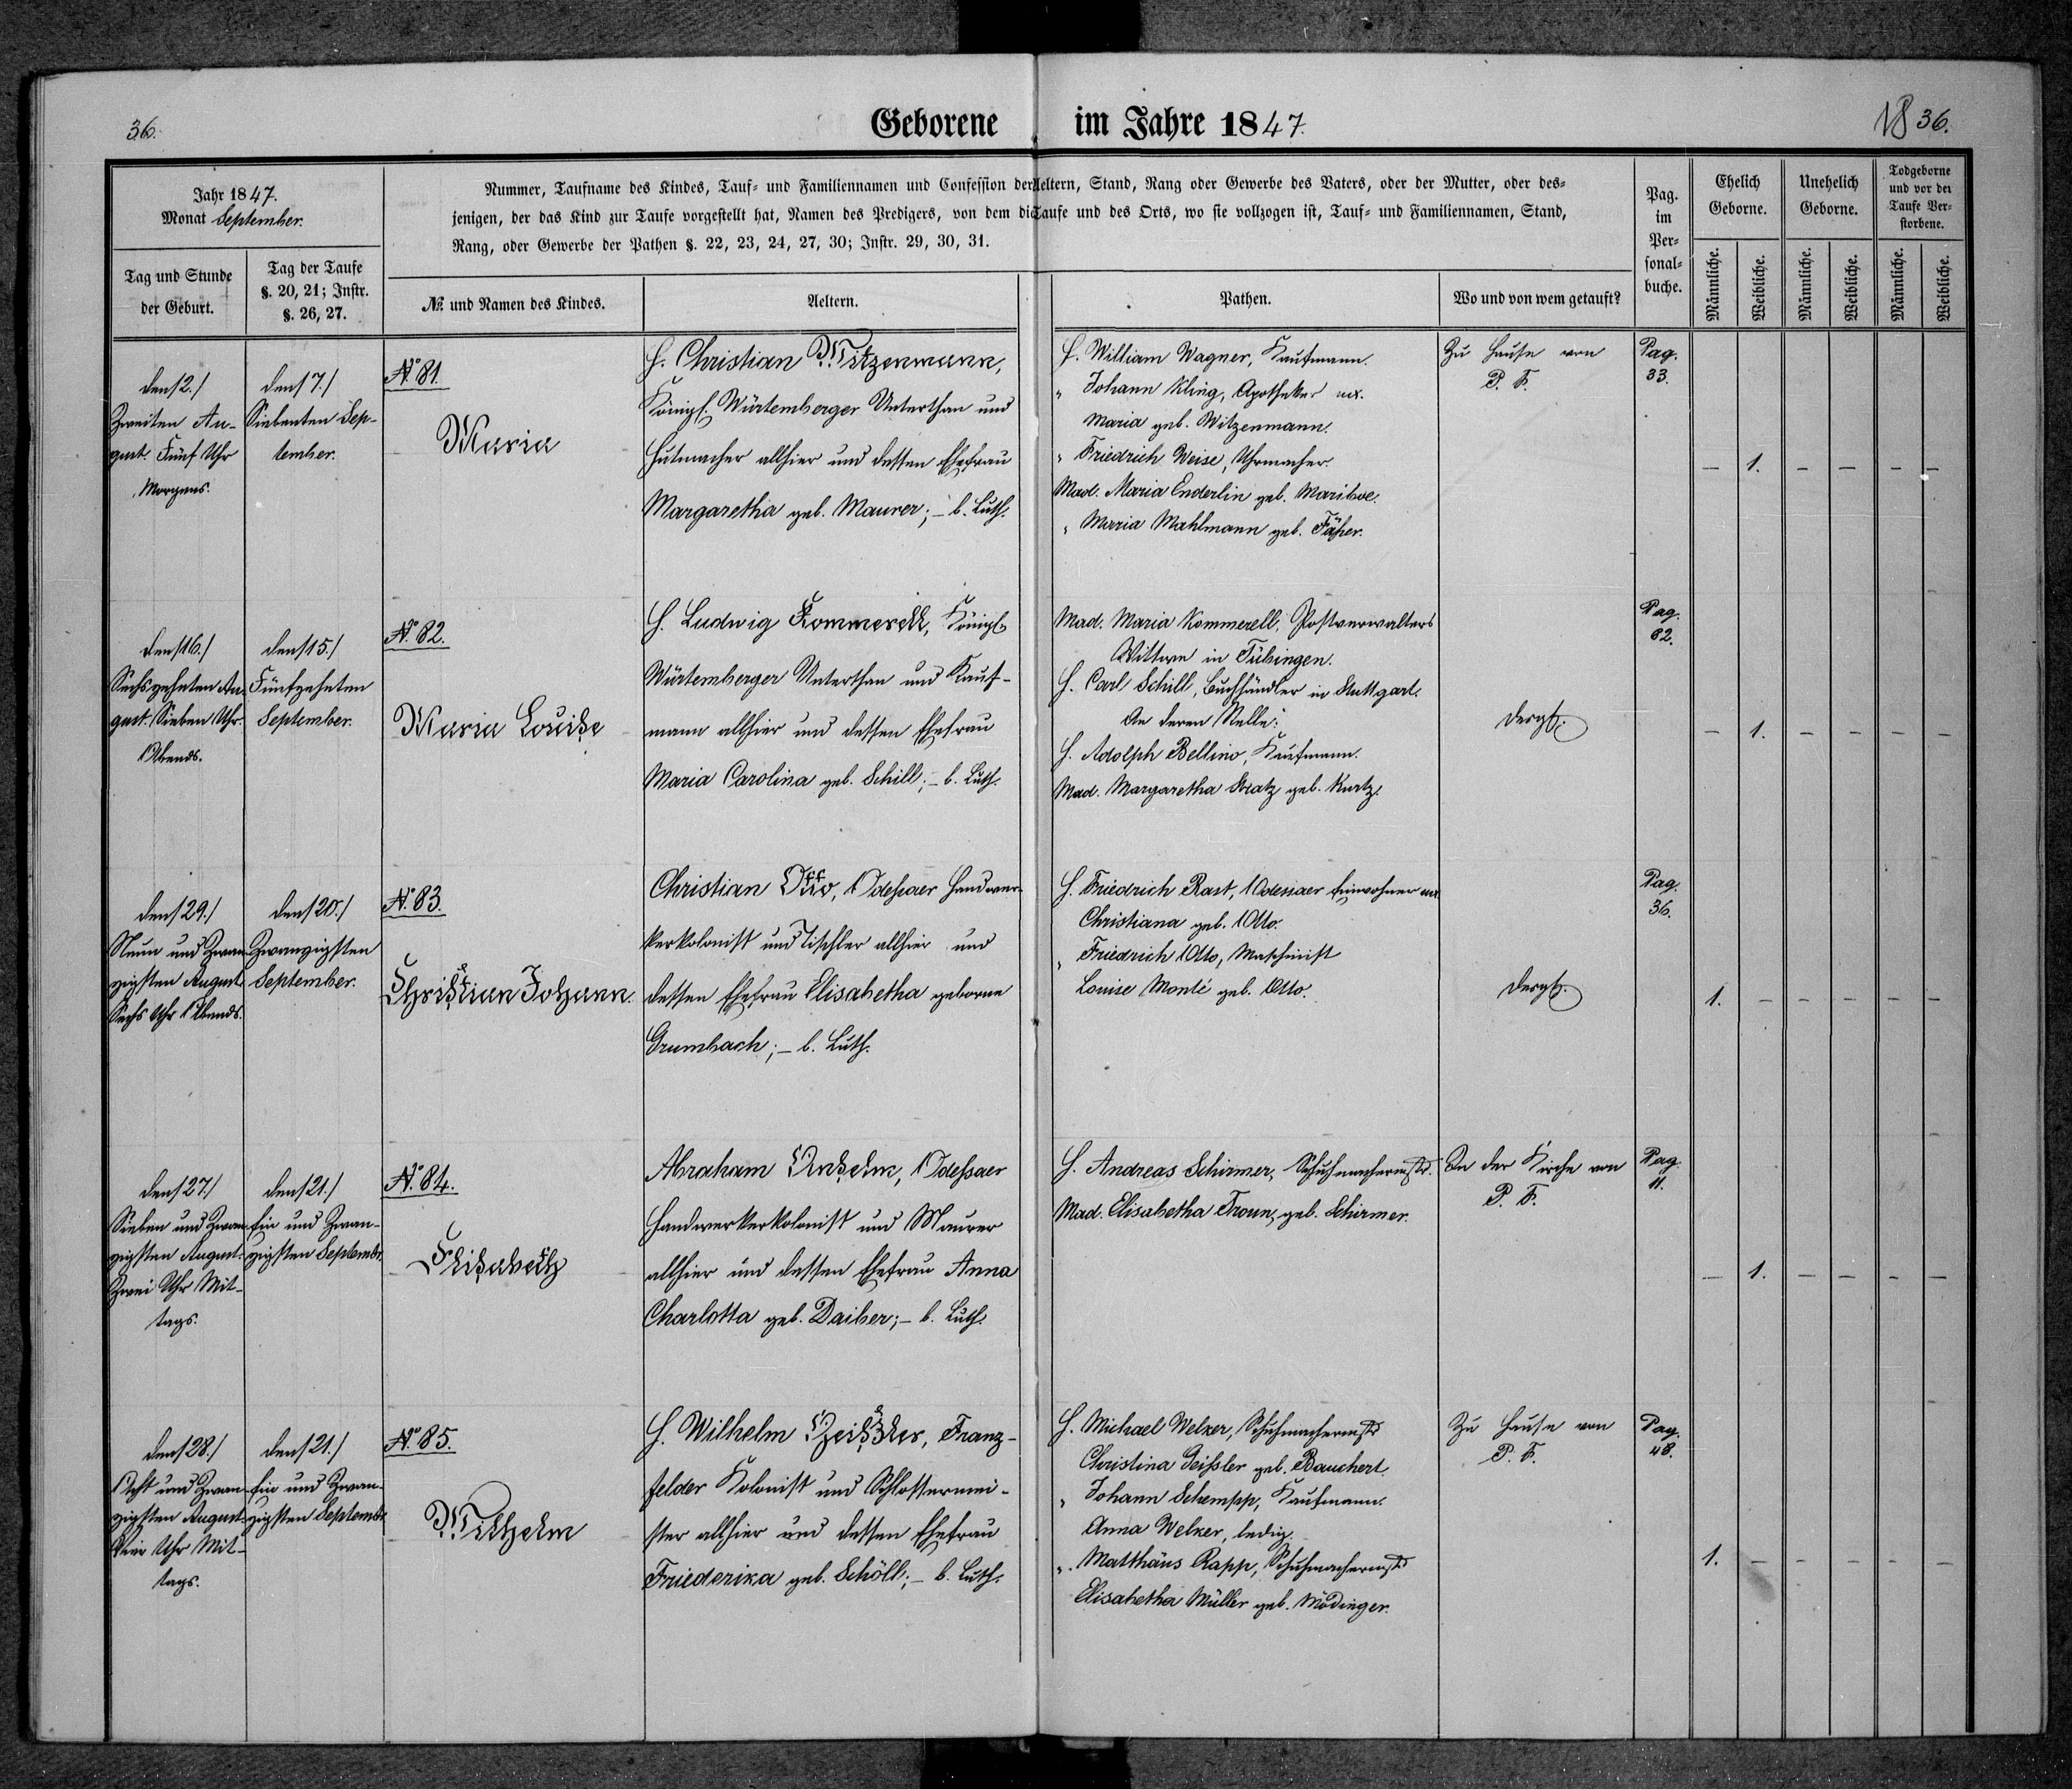 36.
Geborene im Jahre 1847.
36.
Jahr 1847.
Monat September.
Nummer, Taufname des Kindes, Tauf- und Familiennamen und Confession der Aeltern, Stand, Rang oder Gewerbe des Vaters, oder der Mutter, oder des-
jenigen, der das Kind zur Taufe vorgestellt hat, Namen des Predigers, von dem die Taufe und des Orts, wo sie vollzogen ist, Tauf- und Familiennamen, Stand,
Rang, oder Gewerbe der Pathen §. 22, 23, 24, 27, 30; Instr. 29, 30, 31.
Pag.
im
Per-
sonal-
buche.
Ehelich
Geborne.
Unehelich
Geborne.
Todgeborne
und vor der
Taufe Ver-
storbene.
Tag und Stunde
der Geburt.
Tag der Taufe
§. 20, 21; Instr.
§. 26, 27.
№. und Namen des Kindes.
Aeltern.
Pathen.
Wo und von wem getauft?
Männliche.
Weibliche.
Männliche.
Weibliche.
Männliche.
Weibliche.
den /2./
Zweiten Au-
gust. Fünf Uhr
Morgens.
den /7./
Siebenten Sep-
tember.
№ 81.
Maria
H. Christian Witzenmann,
Königl. Würtemberger Unterthan und
Hutmacher allhier und dessen Ehefrau
Margaretha geb. Maurer; – b. Luth.
H. William Wagner, Kaufmann.
" Johann Kling, Apotheker ux.
Maria geb. Witzenmann.
" Friedrich Weise, Uhrmacher.
Mad. Maria Enderlin geb.
" Maria Mahlmann geb.
Zu Hause von
P. F.
Pag.
33.
– 1. – – – –
den /16./
Sechszehnten Au-
gust. Sieben Uhr.
Abends.
den /15./
Fünfzehnten
September.
№ 82.
Maria Louise
H. Ludwig Kommerell, Königl.
Würtemberger Unterthan und Kauf-
mann allhier und dessen Ehefrau
Maria Carolina geb. Schill; – b. Luth.
Mad. Maria Kommerell, Postverwalters
Wittwe in Tübingen.
H. Carl Schill, Buchhändler in Stuttgart.
An deren Stelle:
H. Adolph Bellino, Kaufmann.
Mad. Margaretha geb. Kurtz.
dergl.
Pag.
62.
– 1. – – – –
den /29./
Neun und Zwan-
zigsten August
Sechs Uhr Abends.
den /20./
Zwanzigsten
September.
№ 83.
Christian Johann
Christian Otto, Odeßaer Handwer-
kerkolonist und Tischler allhier und
dessen Ehefrau Elisabetha geborne
Grumbach; – b. Luth.
H. Friedrich Rast, Odessaer Einwohner ux.
Christiana geb. Otto.
" Friedrich Otto, Maschinist
Louise Monté geb. Otto.
dergl.
Pag.
36.
1. – – – – –
den /27./
Sieben und Zwan-
zigsten August.
Zwei Uhr Mit-
tags.
den /21./
Ein und Zwan-
zigsten Septembr.
№ 84.
Elisabeth
Abraham Anselm, Odeßaer
Handwerkerkolonist und Maurer
allhier und dessen Ehefrau Anna
Charlotta geb. Daiber; – b. Luth.
H. Andreas Schirmer, Schuhmachermstr.
Mad. Elisabetha geb. Schirmer.
In der Kirche von
P. F.
Pag.
11.
– 1. – – – –
den /28./
Acht und Zwan-
zigsten August
Vier Uhr Mit-
tags.
den /21./
Ein und Zwan-
zigsten Septembr.
№ 85.
Wilhelm
H. Wilhelm Geißler, Franz-
felder Kolonist und Schlossermei-
ster allhier und dessen Ehefrau
Friederika geb. Schöll; – b. Luth.
H. Michael Welker, Schuhmachermstr
Christina Geißler geb. Bauchert.
" Johann Schempp, Kaufmann.
Anna Welker, ledig.
" Matthäus Rapp, Schuhmachermstr
Elisabetha Müller geb. Mödinger.
Zu Hause von
P. F.
Pag.
48.
1. – – – – –